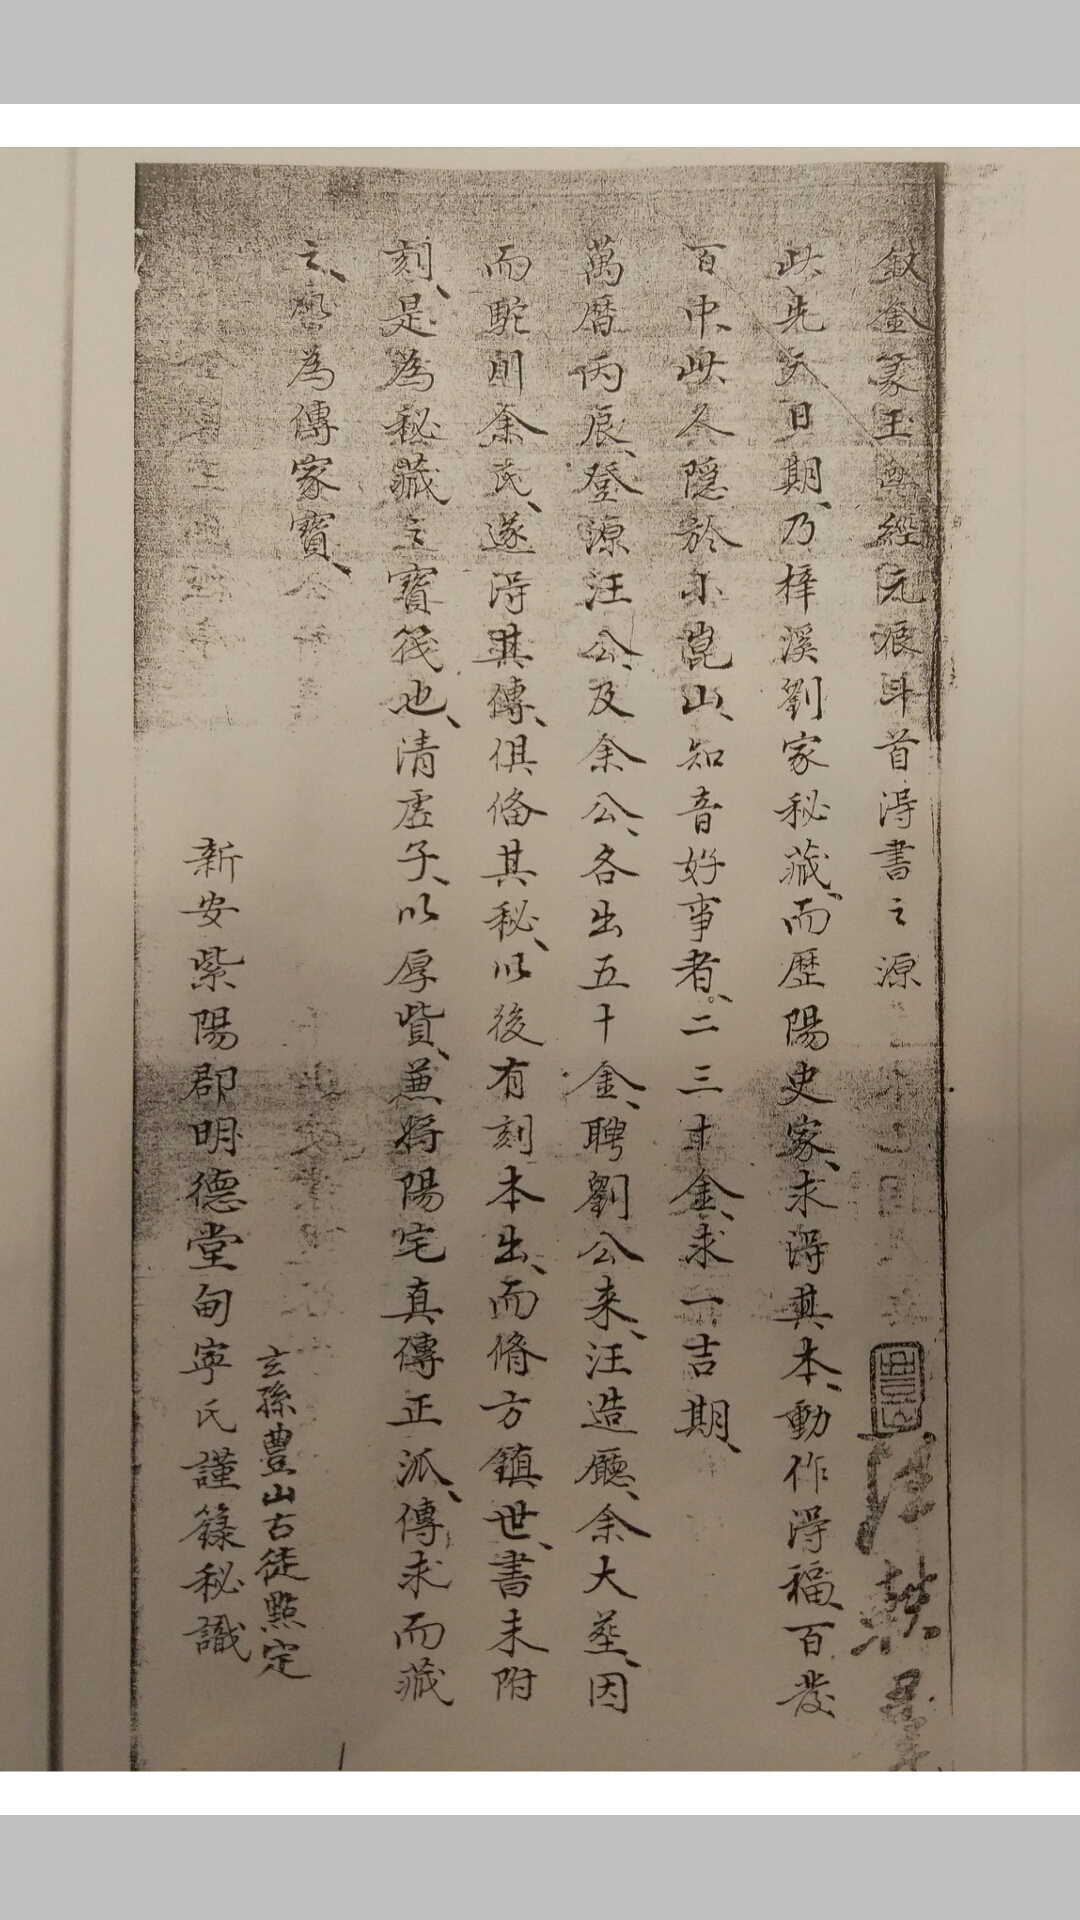 敘金篆玉函經元辰斗首淂書之源
此先天日期、乃梓溪劉家秘藏、而歷陽史家、求淂其本、動作淂福、百發
百中、此久隱於小崑山、知音好事者、二三十金、求一吉期、
萬曆丙辰、登源汪公、及余公、各出五十金、聘劉公來、汪造廳、余大塟、因
而駝則余氏、遂淂其傳、俱俻其秘、以後有刻本出、而脩方鎮世、書未附
刻、是為秘藏之寶筏也、清虛子、以厚貲、兼將陽宅真傳正派、傳求而藏
之、為傳家寶、
玄孫豊山古徒點定
新安紫陽郡明德堂甸寧氏謹錄秘識